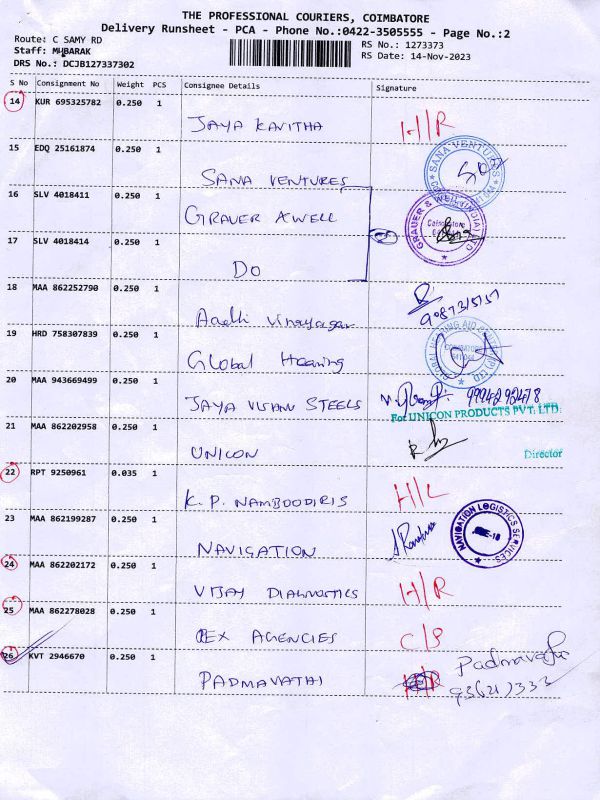 THE PROFESSIONAL COURIERS, COIMBATORE
Delivery Runsheet - PCA - Phone No.:0422-3505555 - Page No.:2
Route: C SAMY RD
RS No.: 1273373
Staff: MUBARAK
RS Date: 14-Nov-2023
DRS No.: DCJB127337302
S No Consignment No Weight PCS Consignee Details Signature
14 KUR 695325782 0.250 1
JAYA KAVITHA H/R
15 EDQ 25161874 0.250 1
SANA VENTURES
SANA VENTURES
16 SLV 4018411 0.250 1
GRAUER & WEIL
GRAUER & WEIL (INDIA) LTD
Coimbatore
17 SLV 4018414 0.250 1
DO
18 MAA 862252790 0.250 1
Aadhi Vinayagar
19 HRD 758307839 0.250 1
Global Hearing
GLOBAL HEARING AID
COIMBATORE
20 MAA 943669499 0.250 1
JAYA VISHNU STEELS 9994292478
For UNICON PRODUCTS PVT. LTD.
21 MAA 862202958 0.250 1
UNICON
Director
22 RPT 9250961 0.035 1
K.P. NAMBOODIRIS H/L
23 MAA 862199287 0.250 1
NAVIGATION
NAVIGATION LOGISTICS SERVICES
24 MAA 862202172 0.250 1
VIJAY DIAGNOSTICS H/R
25 MAA 862278028 0.250 1
EX AGENCIES C/S
26 KVT 2946670 0.250 1
PADMAVATHI H/R Padmavathi